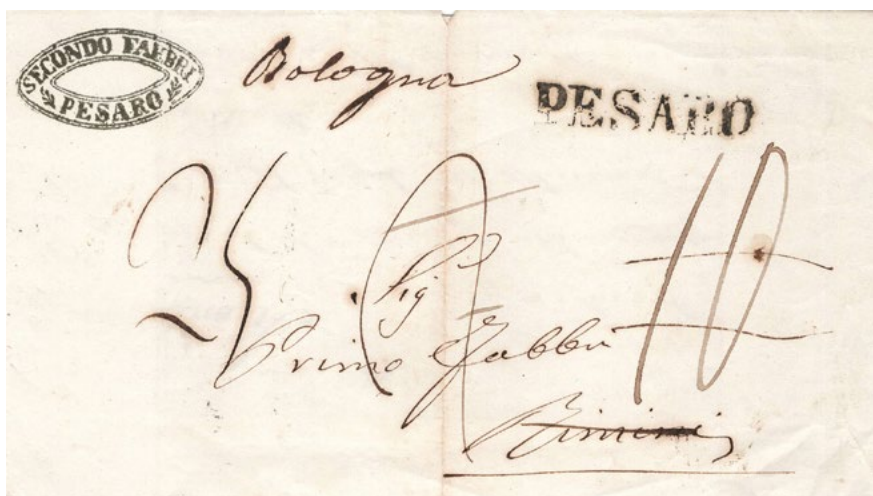 SECONDO FABBRI
PESARO
Bologna
PESARO
10
Sig
Primo Fabbri
Rimini